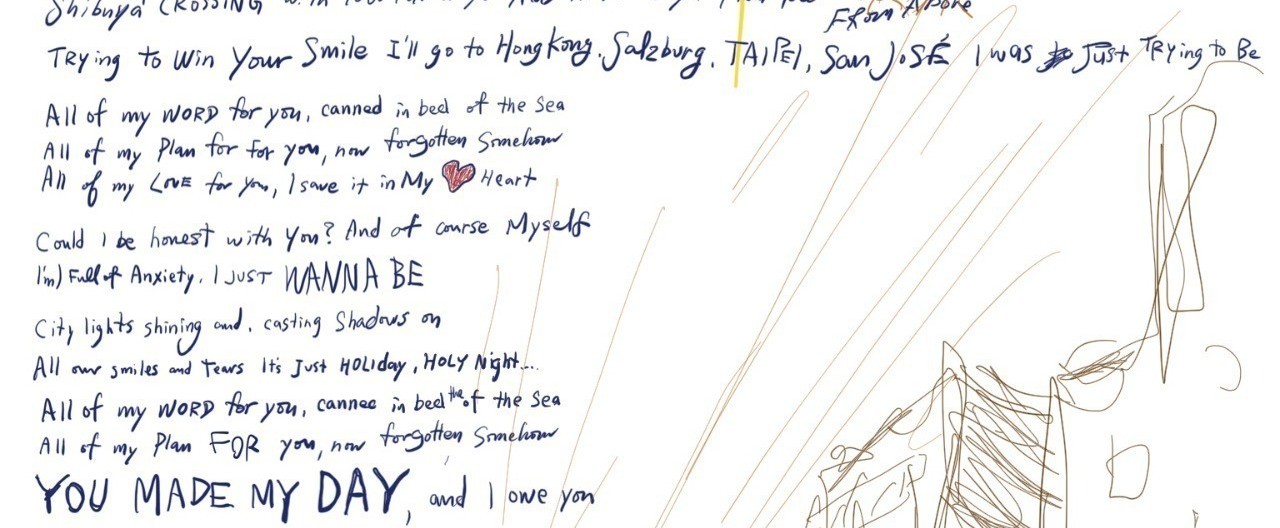 Shibuya CROSSING
FROM Above
Trying to Win Your Smile I'll go to HongKong. Salzburg. TAIPEI, San JoSÉ I was Just TRying to Be
All of my WORD for you, canned in bed of the Sea
All of my Plan for for you, now forgotten Somehow
All of my LOVE for you, I save it in My Heart
Could I be honest with You? And of course Myself
I'm) Full of Anxiety. I JUST WANNA BE
City lights shining and. casting Shadows on
All our smiles and Tears It's Just HOLIday, HOLY Night....
All of my WORD for you, canned in bed the of the Sea
All of my Plan FOR you, now forgotten Somehow
YOU MADE MY DAY, and I owe you